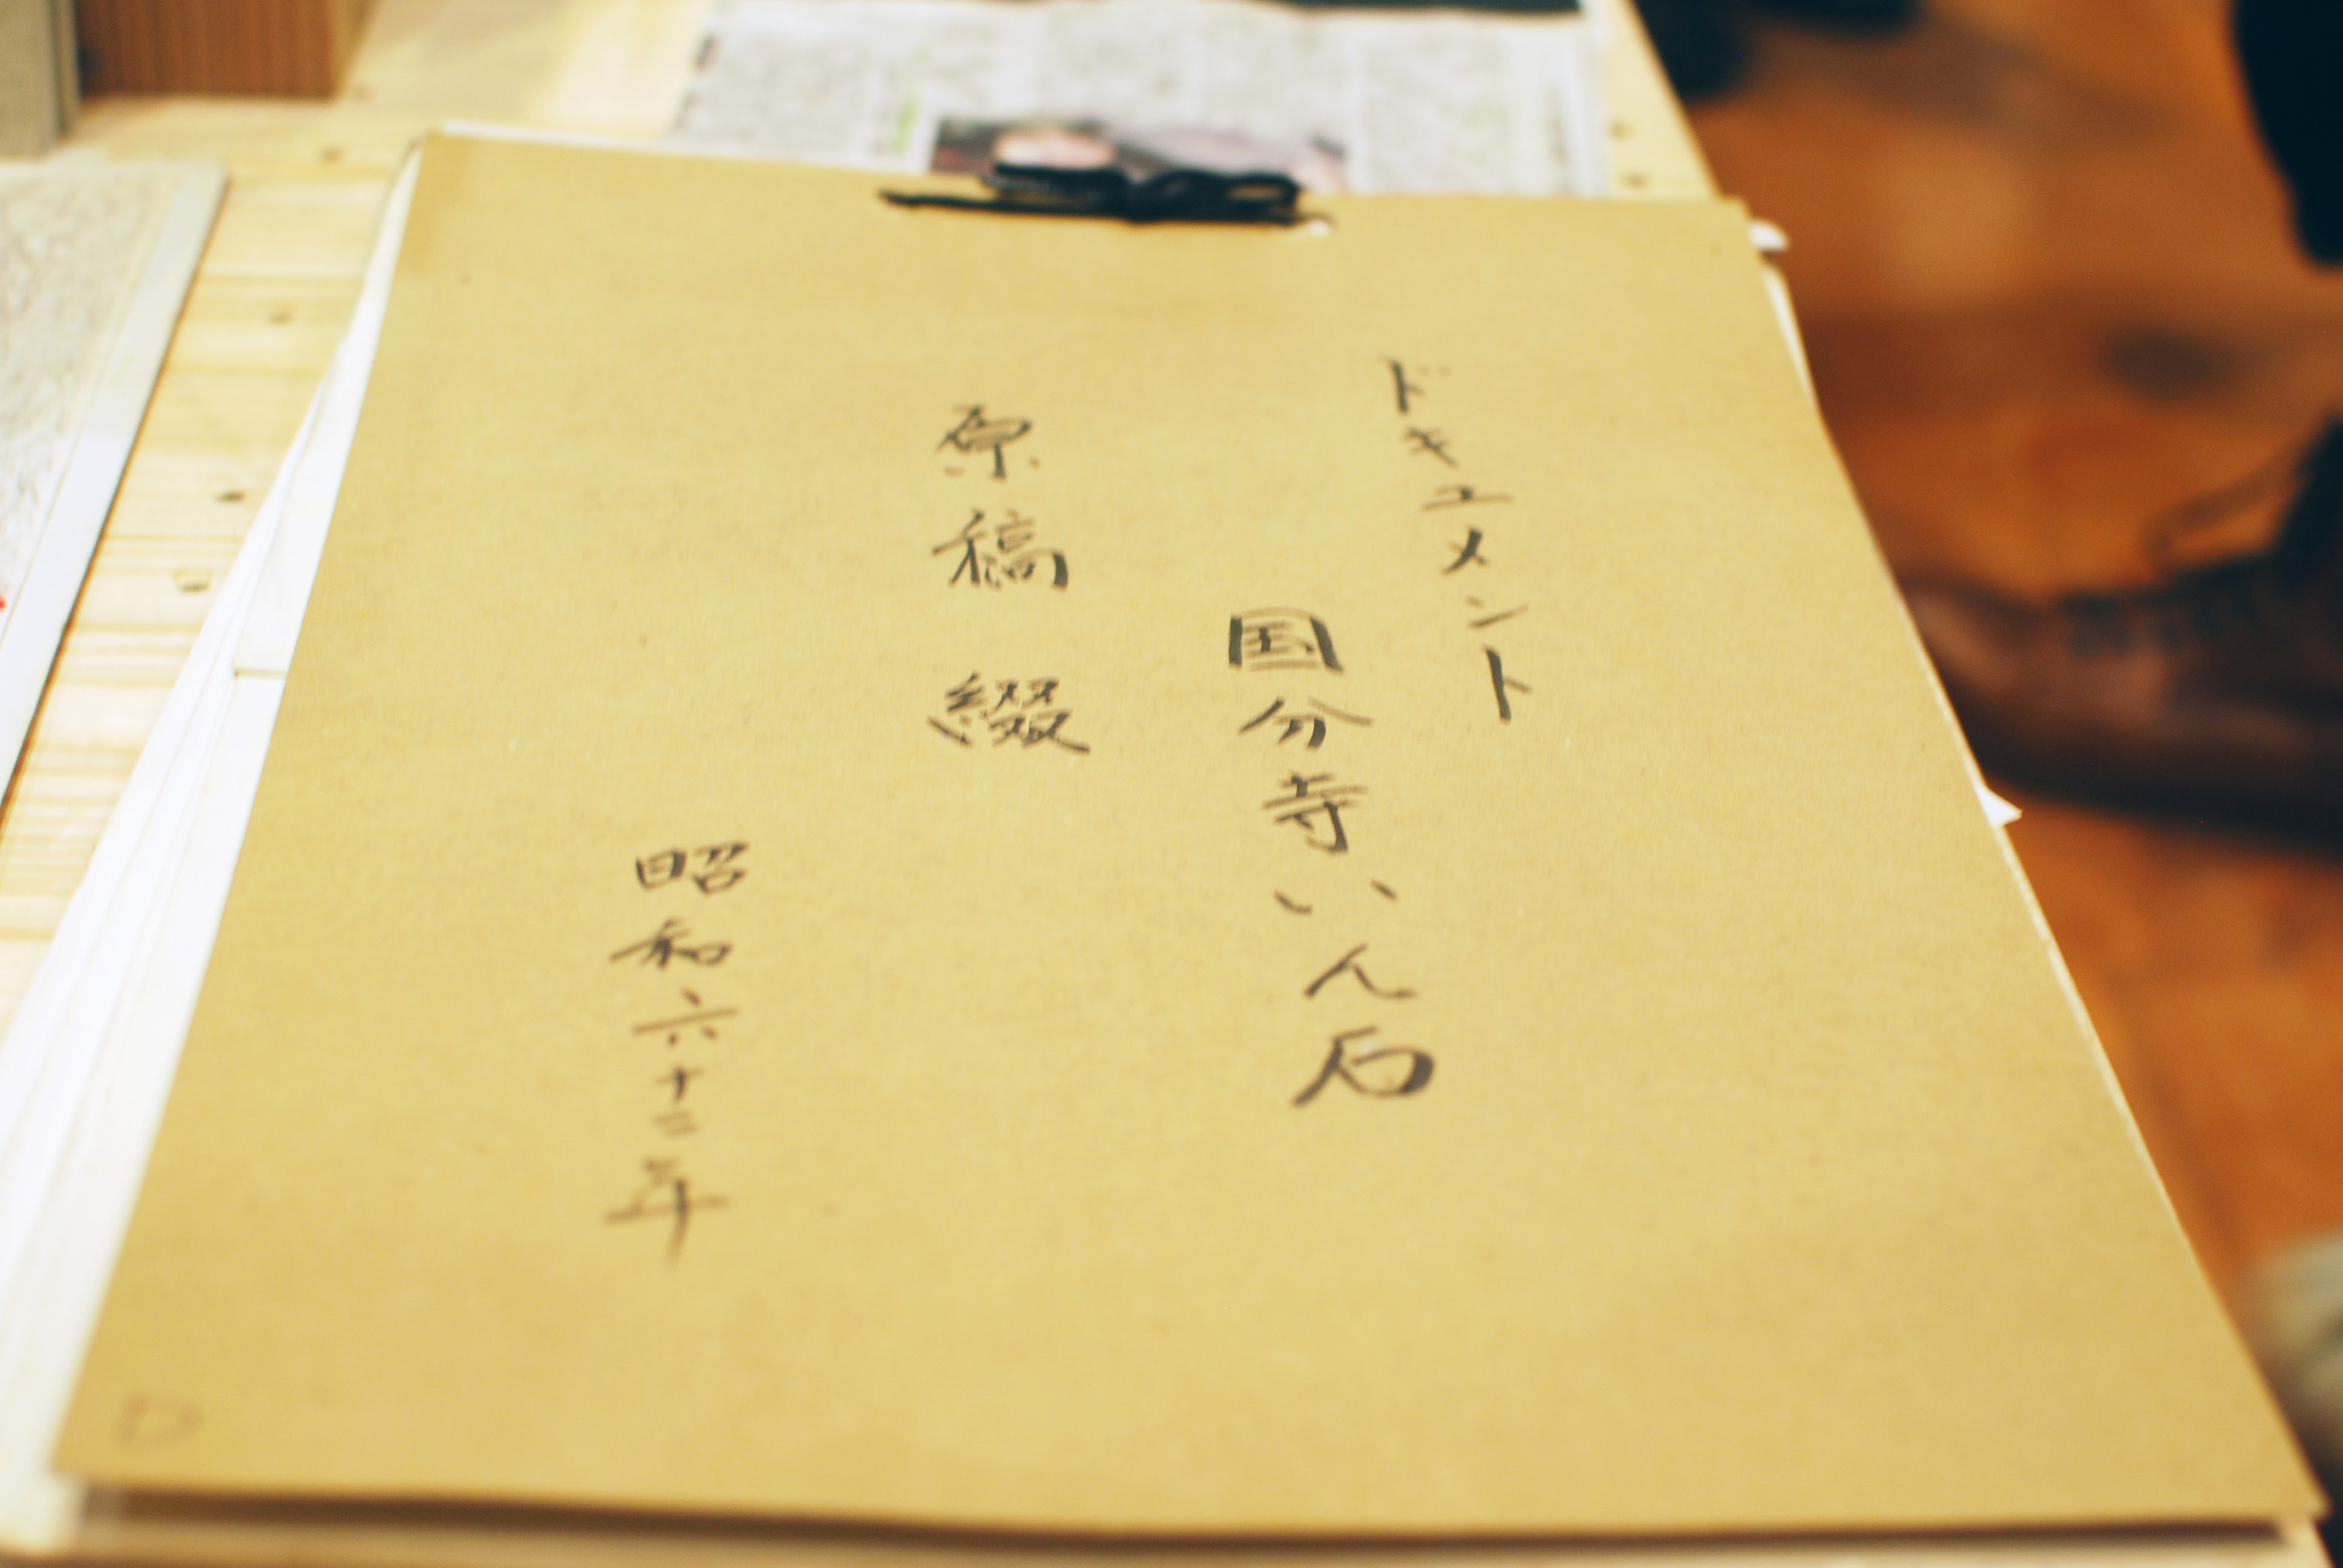 ドキュメント
国分寺いん石
原稿綴
昭和六十二年